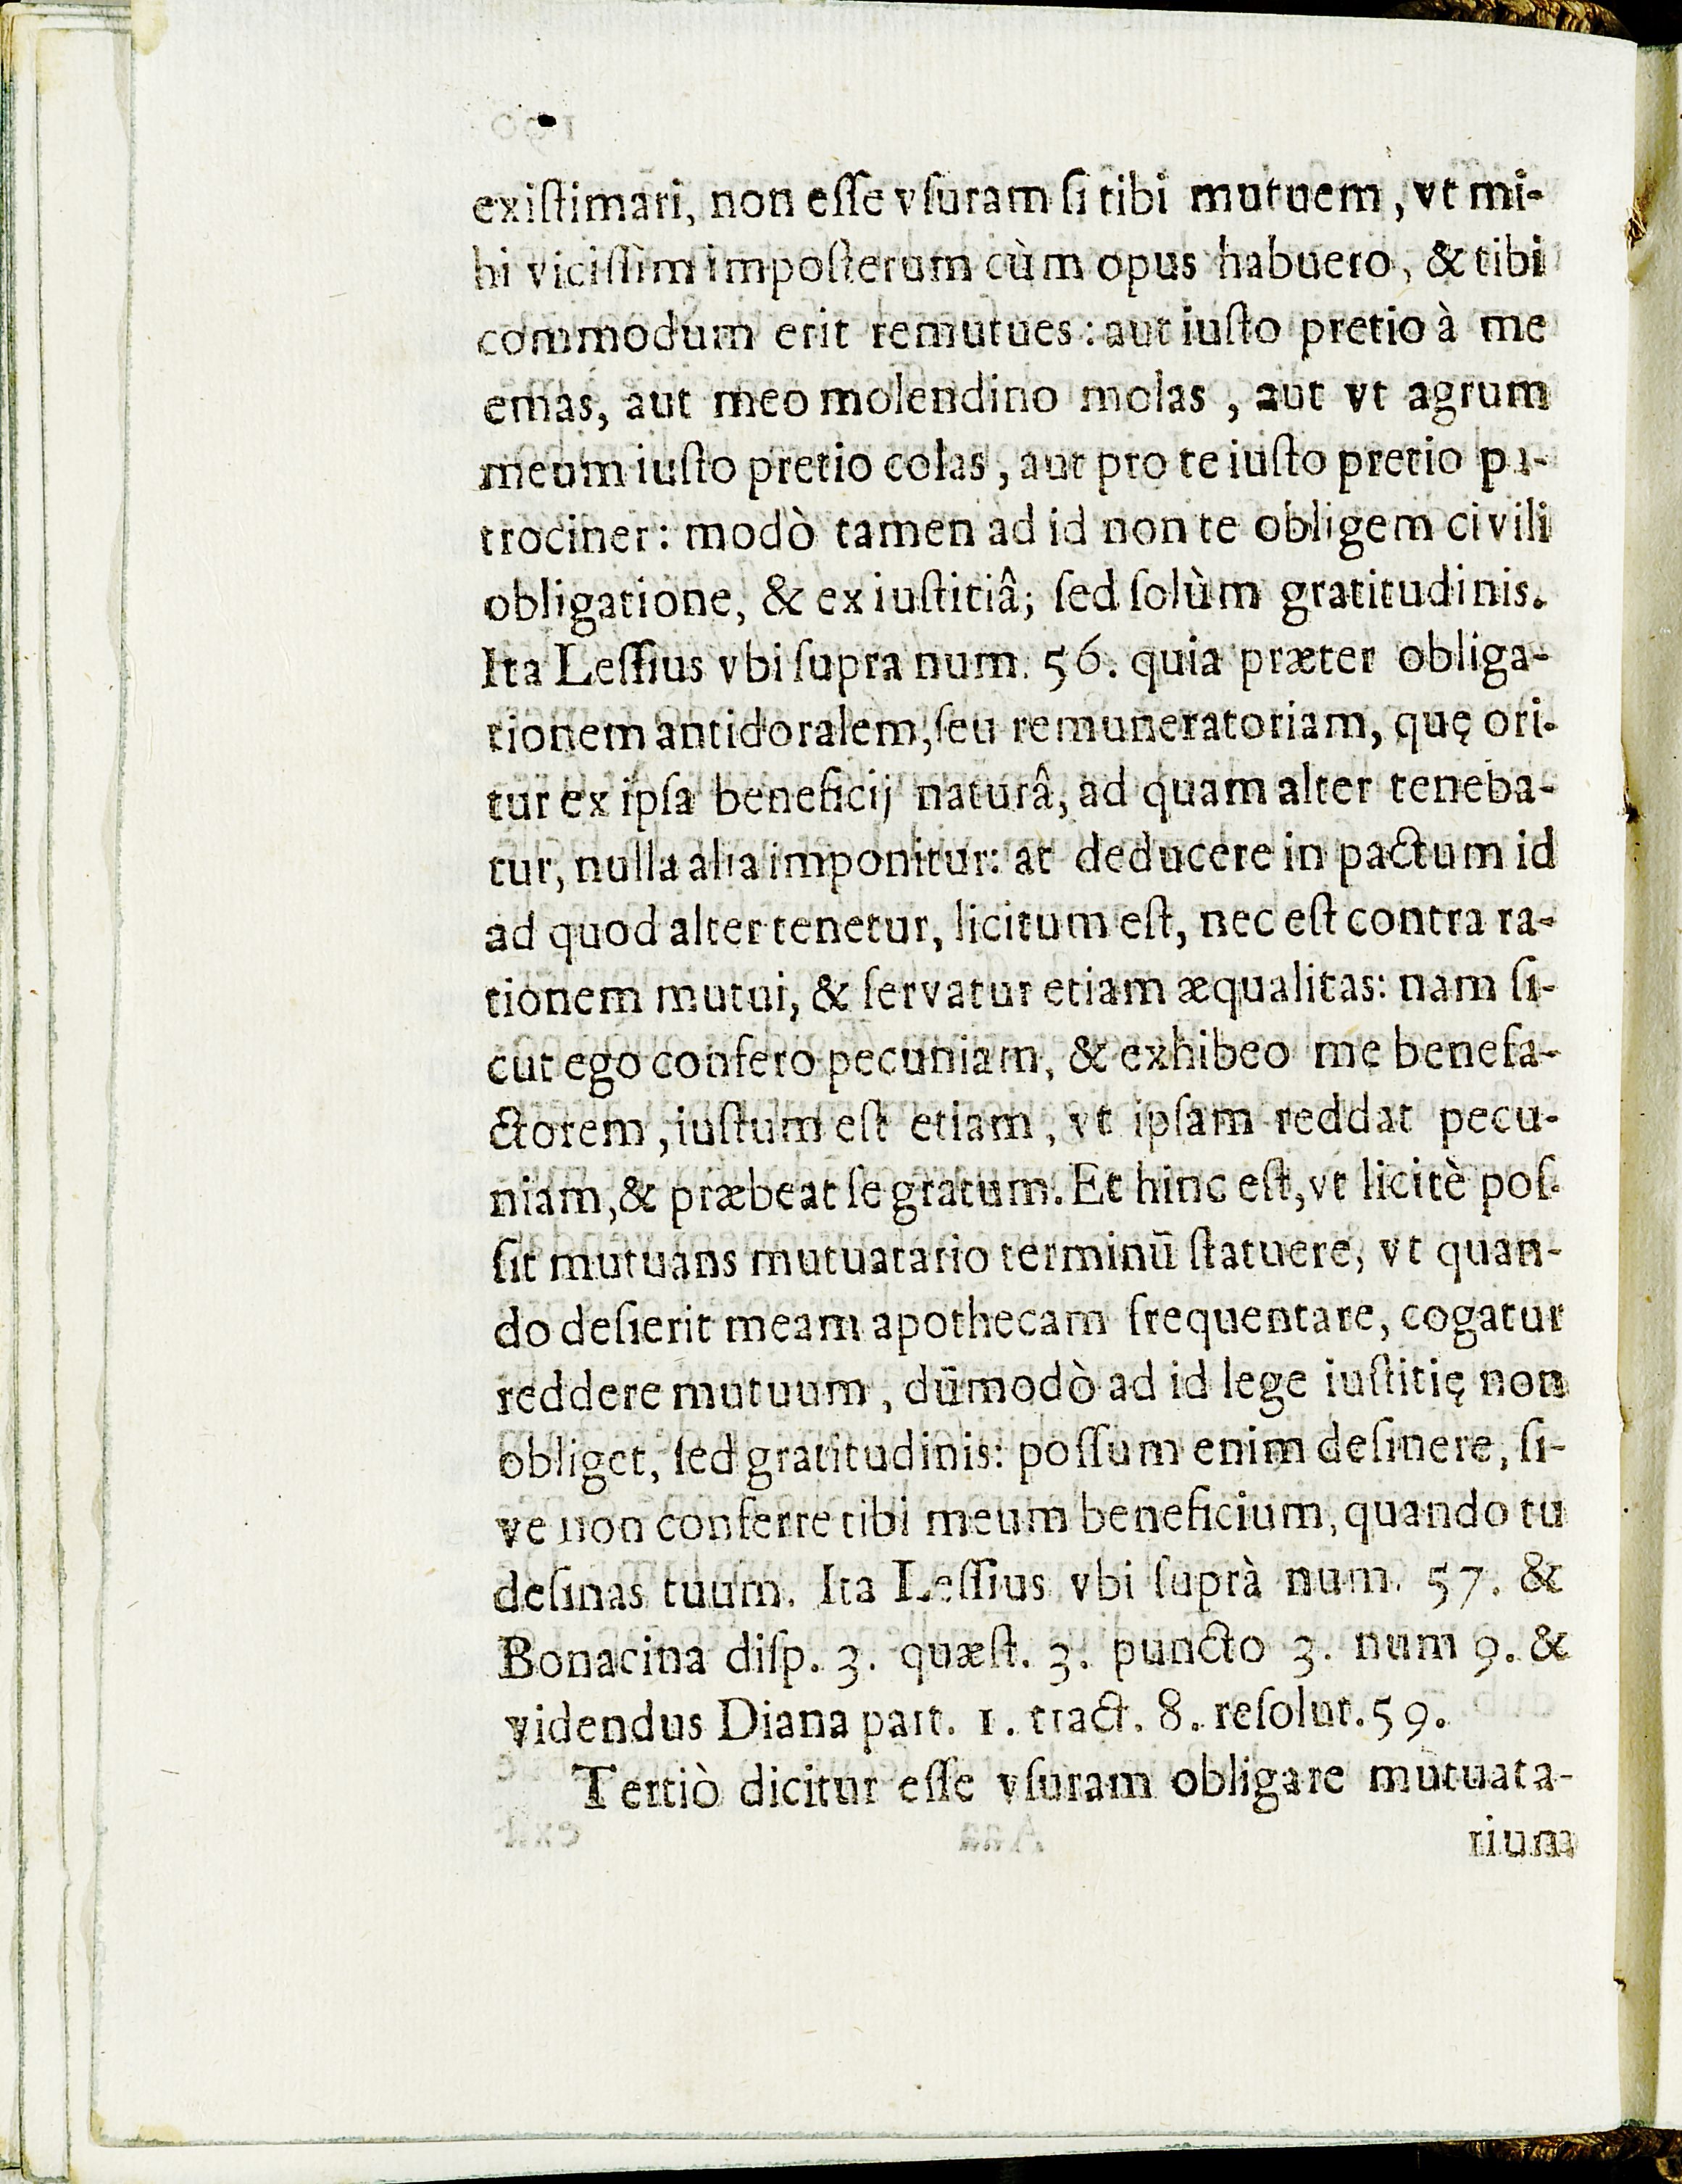 exiſtimari, non eſſe vſuram ſi tibi mutuem, vt mi-
hi viciſſim impoſterum cùm opus habuero, & tibi
commodum erit remutues: aut iuſto pretio à me
emas, aut meo molendino molas, aut vt agrum
meum iuſto pretio colas, aut pro te iuſto pretio pa-
trociner: modò tamen ad id non te obligem civili
obligatione, & ex iuſtitiâ; ſed ſolùm gratitudinis.
Ita Leſſius vbi ſupra num. 56. quia præter obliga-
tionem antidoralem, ſeu remuneratoriam, quę ori-
tur ex ipſa beneficij naturâ, ad quam alter teneba-
tur, nulla alia imponitur: at deducere in pactum id
ad quod alter tenetur, licitum eſt, nec eſt contra ra-
tionem mutui, & ſervatur etiam æqualitas: nam ſi-
cut ego confero pecuniam, & exhibeo me benefa-
ctorem, iuſtum eſt etiam, vt ipſam reddat pecu-
niam, & præbeat ſe gratum. Et hinc eſt, vt licitè poſ-
ſit mutuans mutuatario terminū ſtatuere, vt quan-
do deſierit meam apothecam frequentare, cogatur
reddere mutuum, dūmodò ad id lege iuſtitię non
obliget, ſed gratitudinis: poſſum enim deſinere, ſi-
ve non conferre tibi meum beneficium, quando tu
deſinas tuum. Ita Leſſius vbi ſuprà num. 57. &
Bonacina diſp. 3. quæſt. 3. puncto 3. num 9. &
videndus Diana part. 1. tract. 8. reſolut. 59.
Tertiò dicitur eſſe vſuram obligare mutuata-
rium